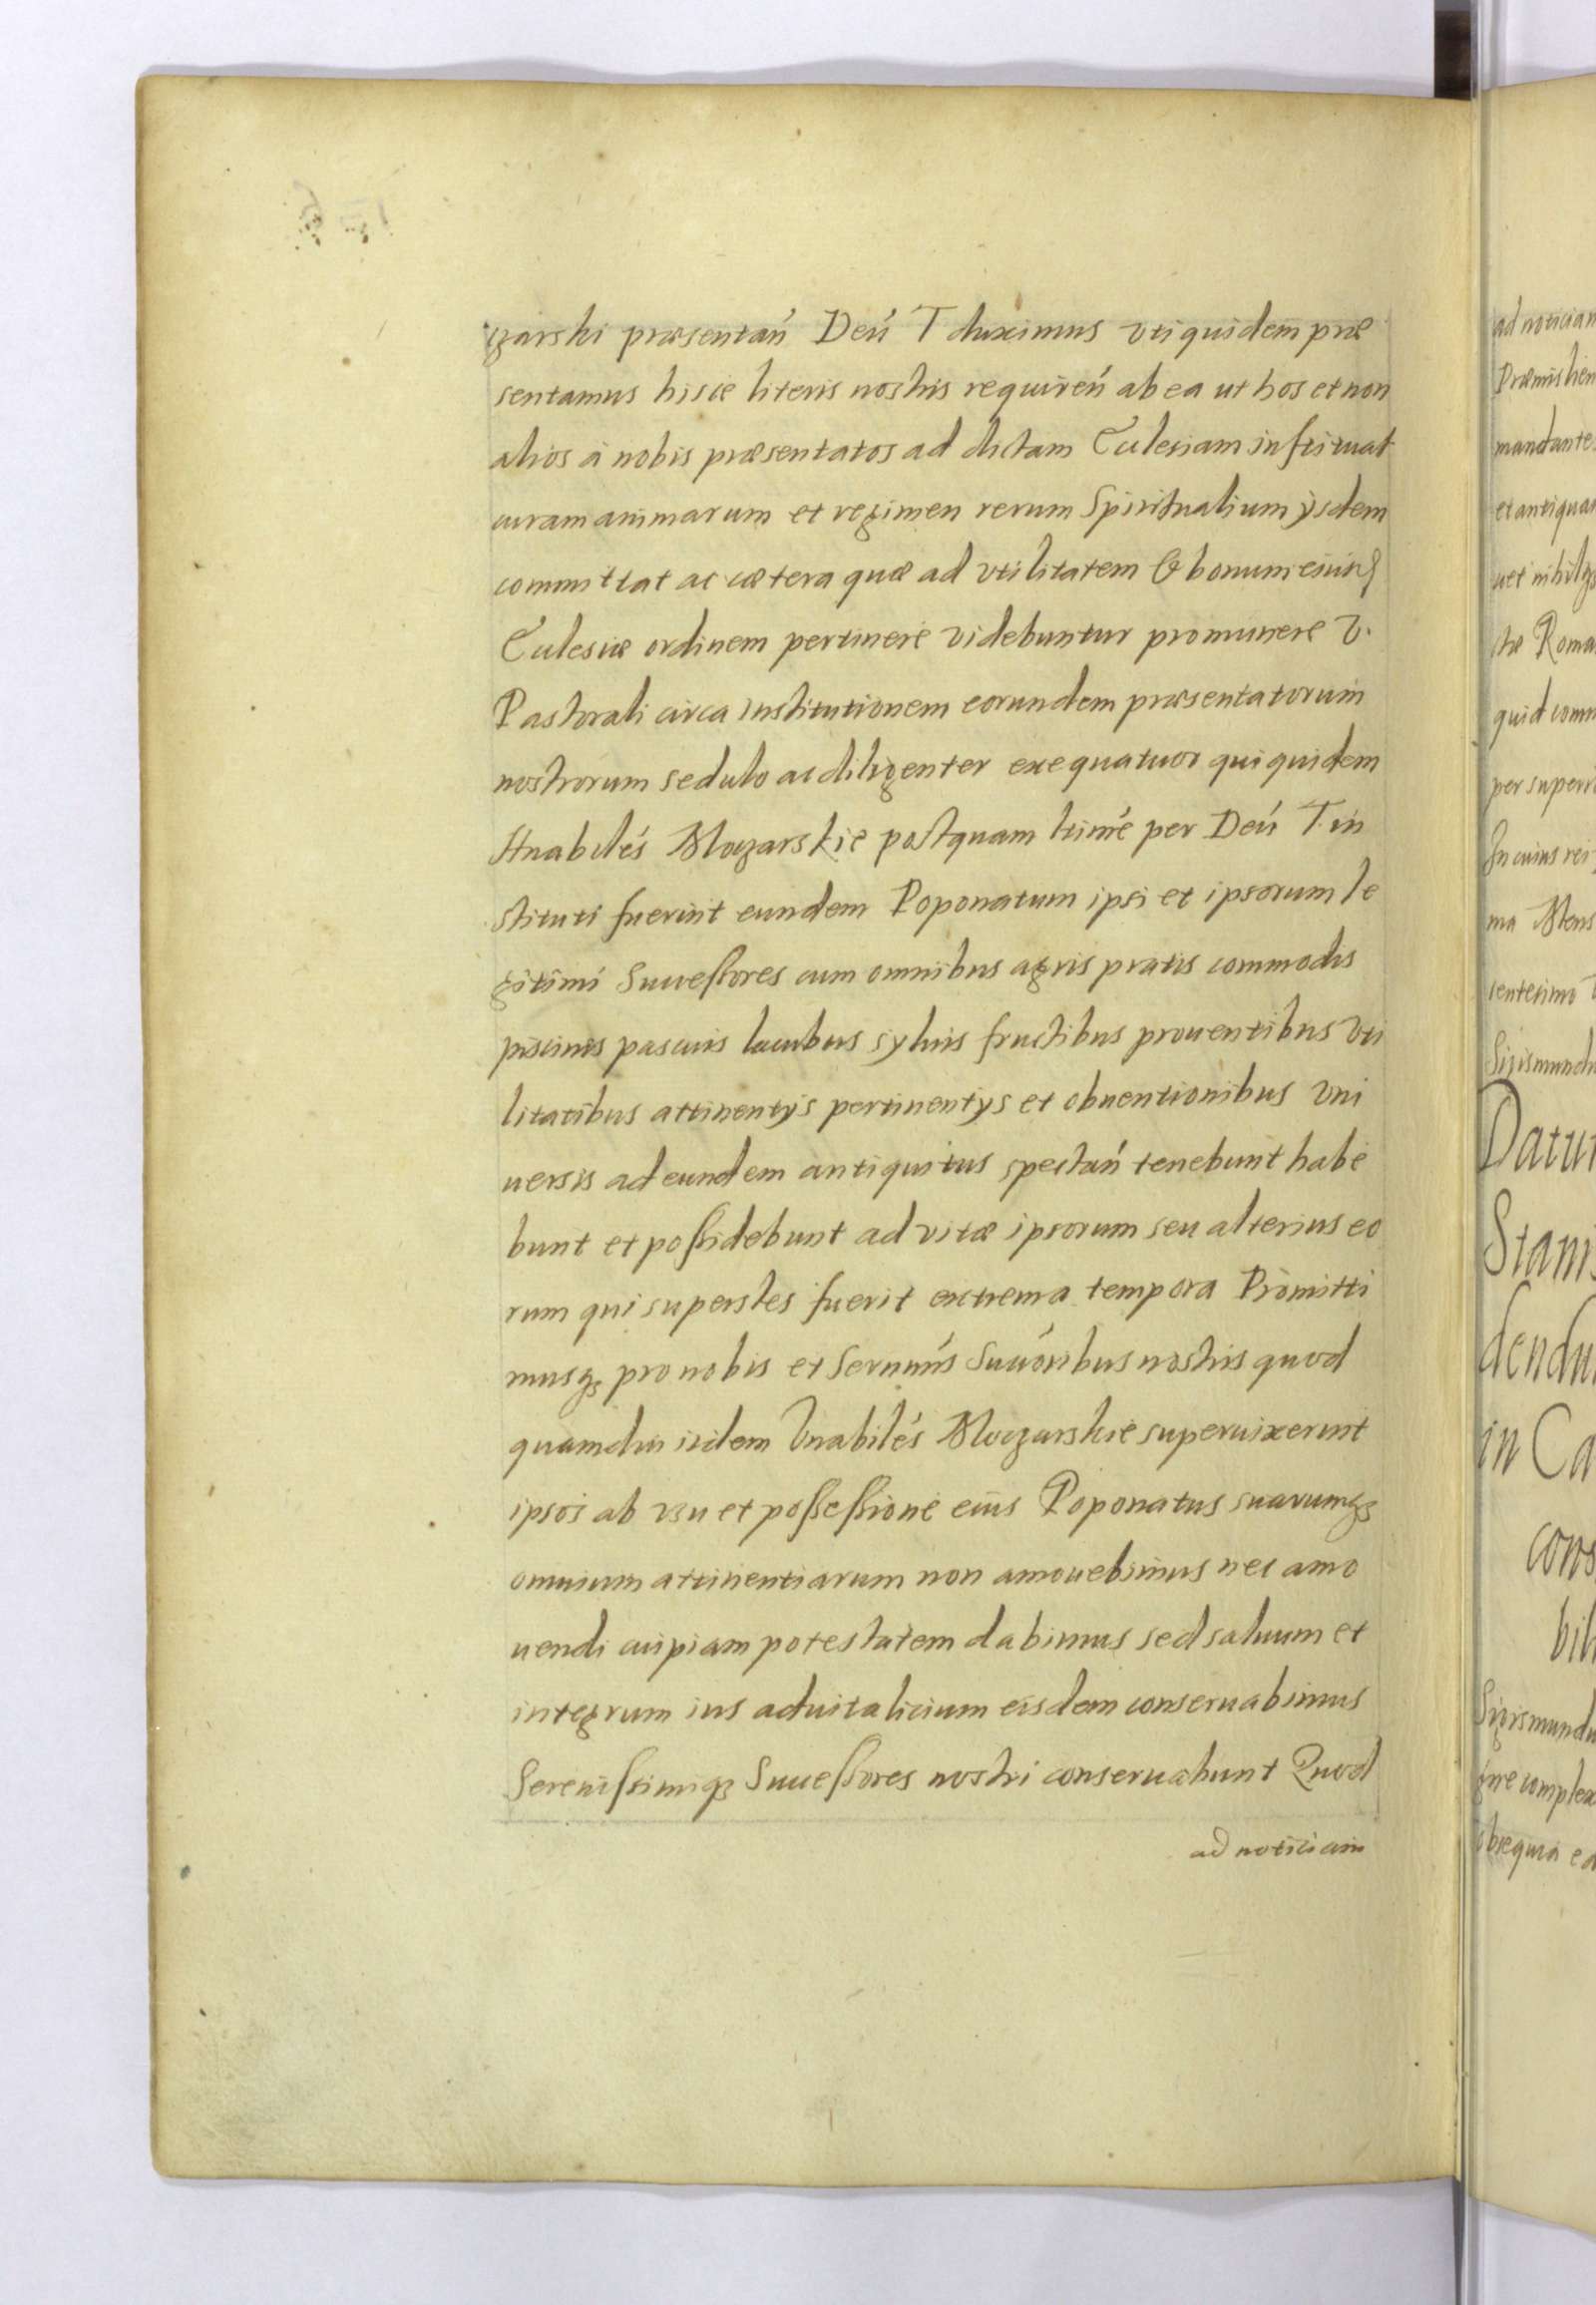 czarski præsentań Deú T duximus vti quidem præ
sentamus hisce literis nostris requireń ab ea ut hos et non
alios à nobis præsentatos ad dictam Eclesiam instituat
curam animarum et regimen rerum Spiritualium ysdem
committat ac cætera quæ ad vtilitatem & bonum eiusq
Eclesiæ ordinem pertinere videbuntur pro munere v.
Pastorali circa institutionem eorundem præsentatorum
nostrorum sedulo ac diligenter exequatuor qui quidem
Hnabilés Moczarskie postquam ltime per Deú T. in
stituti fuerint eundem Poponatum ipsi et ipsorum le
gitimi Successores cum omnibus agris pratis commodis
piscinis pascuis lacubus syluis fructibus prouentibus vti
litatibus attinentys pertinentys et obuentionibus vni
uersis ad eundem antiquitus spectań tenebunt habe
bunt et possidebunt ad vitæ ipsorum seu alterius eo
rum qui superstes fuerit extrema tempora Promitti
musqȝ pro nobis et Sernmis Succoribus nostris quod
quamdiu iidem Hnabilés Moczarskie superuixerint
ipsos ab vsu et possessione eius Poponatus suarumqȝ
omnium attinentiarum non amouebimus nec amo
uendi cuipiam potestatem dabimus sed saluum et
integrum ius aduitalicium eisdem conseruabimus
Serenissimiqȝ Successores nostri conseruabunt Quod
ad noticiam
ad noticiam
mandante
et antiquas
Roma
quid comm
per superi
In cuius rei
ma Mens
centesimo
Sigismundu
Datum
Stanis
dendu
in Ca
cons
bili
Sigismundu
complex
obsequia ea